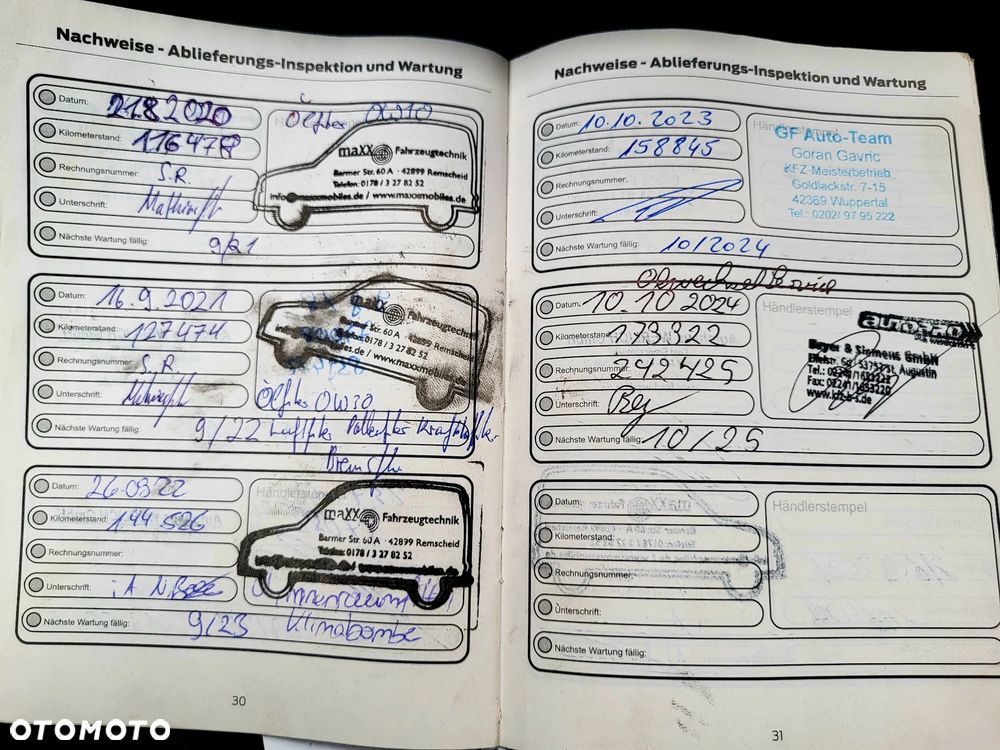 Nachweise - Ablieferungs-Inspektion und Wartung
Datum: 21.8.2020
Kilometerstand: 116478
Rechnungsnummer: S.R.
Unterschrift:
Nächste Wartung fällig: 9/21
Ölfilter 0W30
maXX Fahrzeugtechnik
Barmer Str. 60 A · 42899 Remscheid
Telefon: 0178 / 3 27 82 52
info@maxxomobiles.de / www.maxxomobiles.de
Datum: 16.9.2021
Kilometerstand: 127474
Rechnungsnummer: S.R.
Unterschrift:
Nächste Wartung fällig: 9/22
maXX Fahrzeugtechnik
Barmer Str. 60 A · 42899 Remscheid
Telefon: 0178 / 3 27 82 52
info@ / www.maxxomobiles.de
Ölfilter 0W30
Luftfilter Pollenfilter Kraftstoffilter
Datum: 26.09.22
Kilometerstand: 144 526
Rechnungsnummer:
Unterschrift: i.A
Nächste Wartung fällig: 9/23
Händlerstempel
maXX Fahrzeugtechnik
Barmer Str. 60 A · 42899 Remscheid
Telefon: 0178 / 3 27 82 52
Klimabombe
30
Nachweise - Ablieferungs-Inspektion und Wartung
Datum: 10.10.2023
Kilometerstand: 158845
Rechnungsnummer:
Unterschrift:
Nächste Wartung fällig: 10/2024
Händlerstempel
GF Auto-Team
Goran Gavric
KFZ-Meisterbetrieb
Goldlackstr. 7-15
42369 Wuppertal
Tel.: 0202/ 97 95 222
Ölwechsel Service
Datum: 10.10 2024
Kilometerstand: 173322
Rechnungsnummer: 242425
Unterschrift:
Nächste Wartung fällig: 10/25
Händlerstempel
Beyer & Siemens GmbH
53757 St. Augustin
www.kfz-b-s.de
Datum:
Kilometerstand:
Rechnungsnummer:
Unterschrift:
Nächste Wartung fällig:
Händlerstempel
31
OTOMOTO